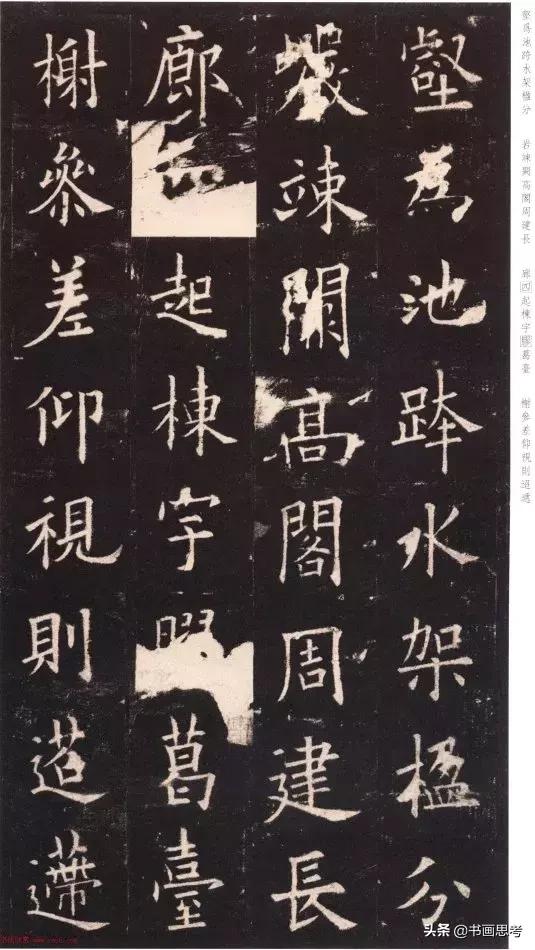 壑爲池跨水架楹分 岩竦闕高閣周建長 廊四起棟宇膠葛臺 榭參差仰視則迢遞
壑爲池跨水架楹分
巖竦闕高閣周建長
廊起棟宇葛臺
榭參差仰視則迢遰
头条 @书画思考